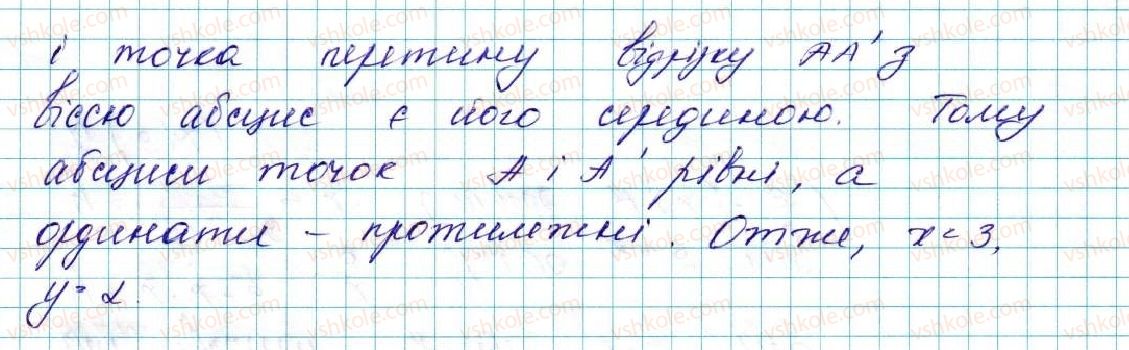 і точка перетину відрізку AA' з
віссю абсцис є його серединою. Тому
абсциси точок A і A' рівні, а
ординати – протилежні. Отже, x = 3,
y = 2.